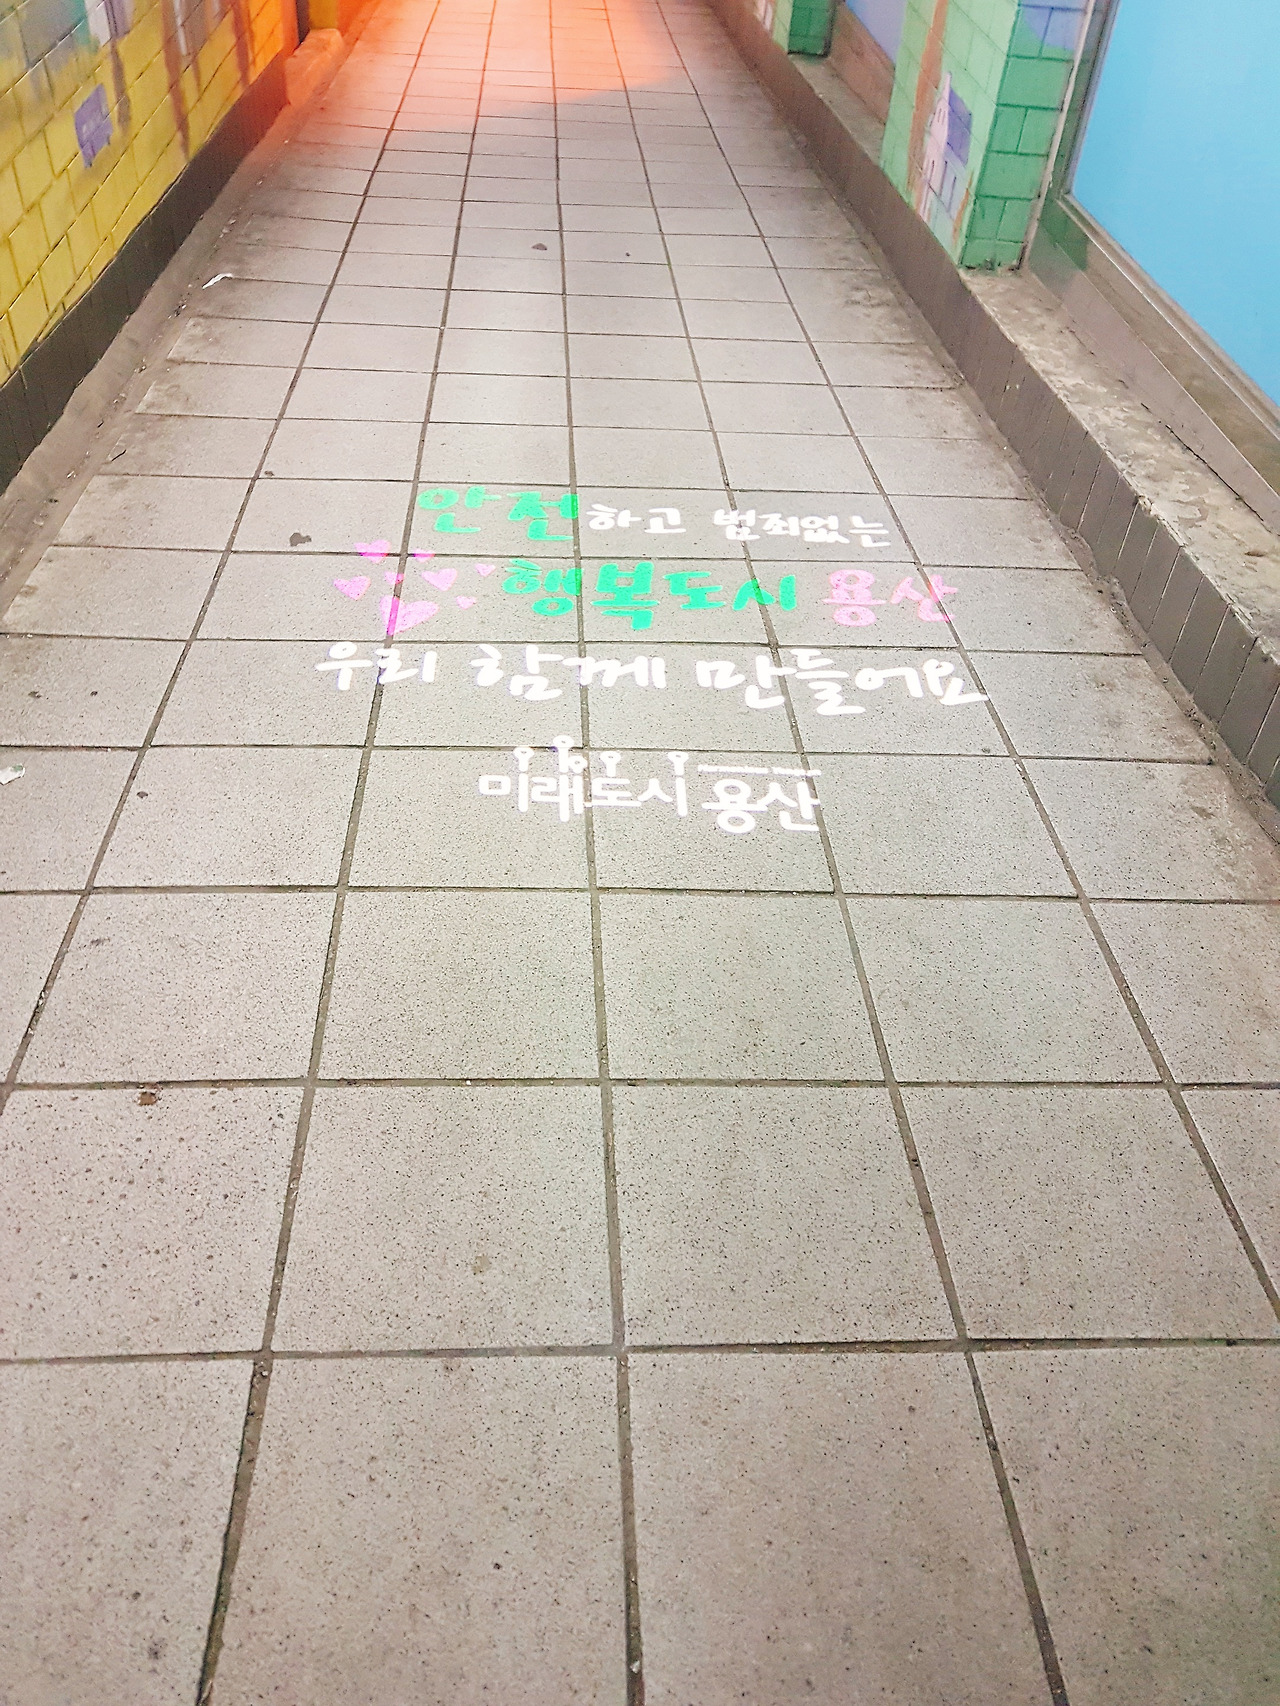 안전하고 범죄없는
행복도시 용산
우리 함께 만들어요
미래도시 용산